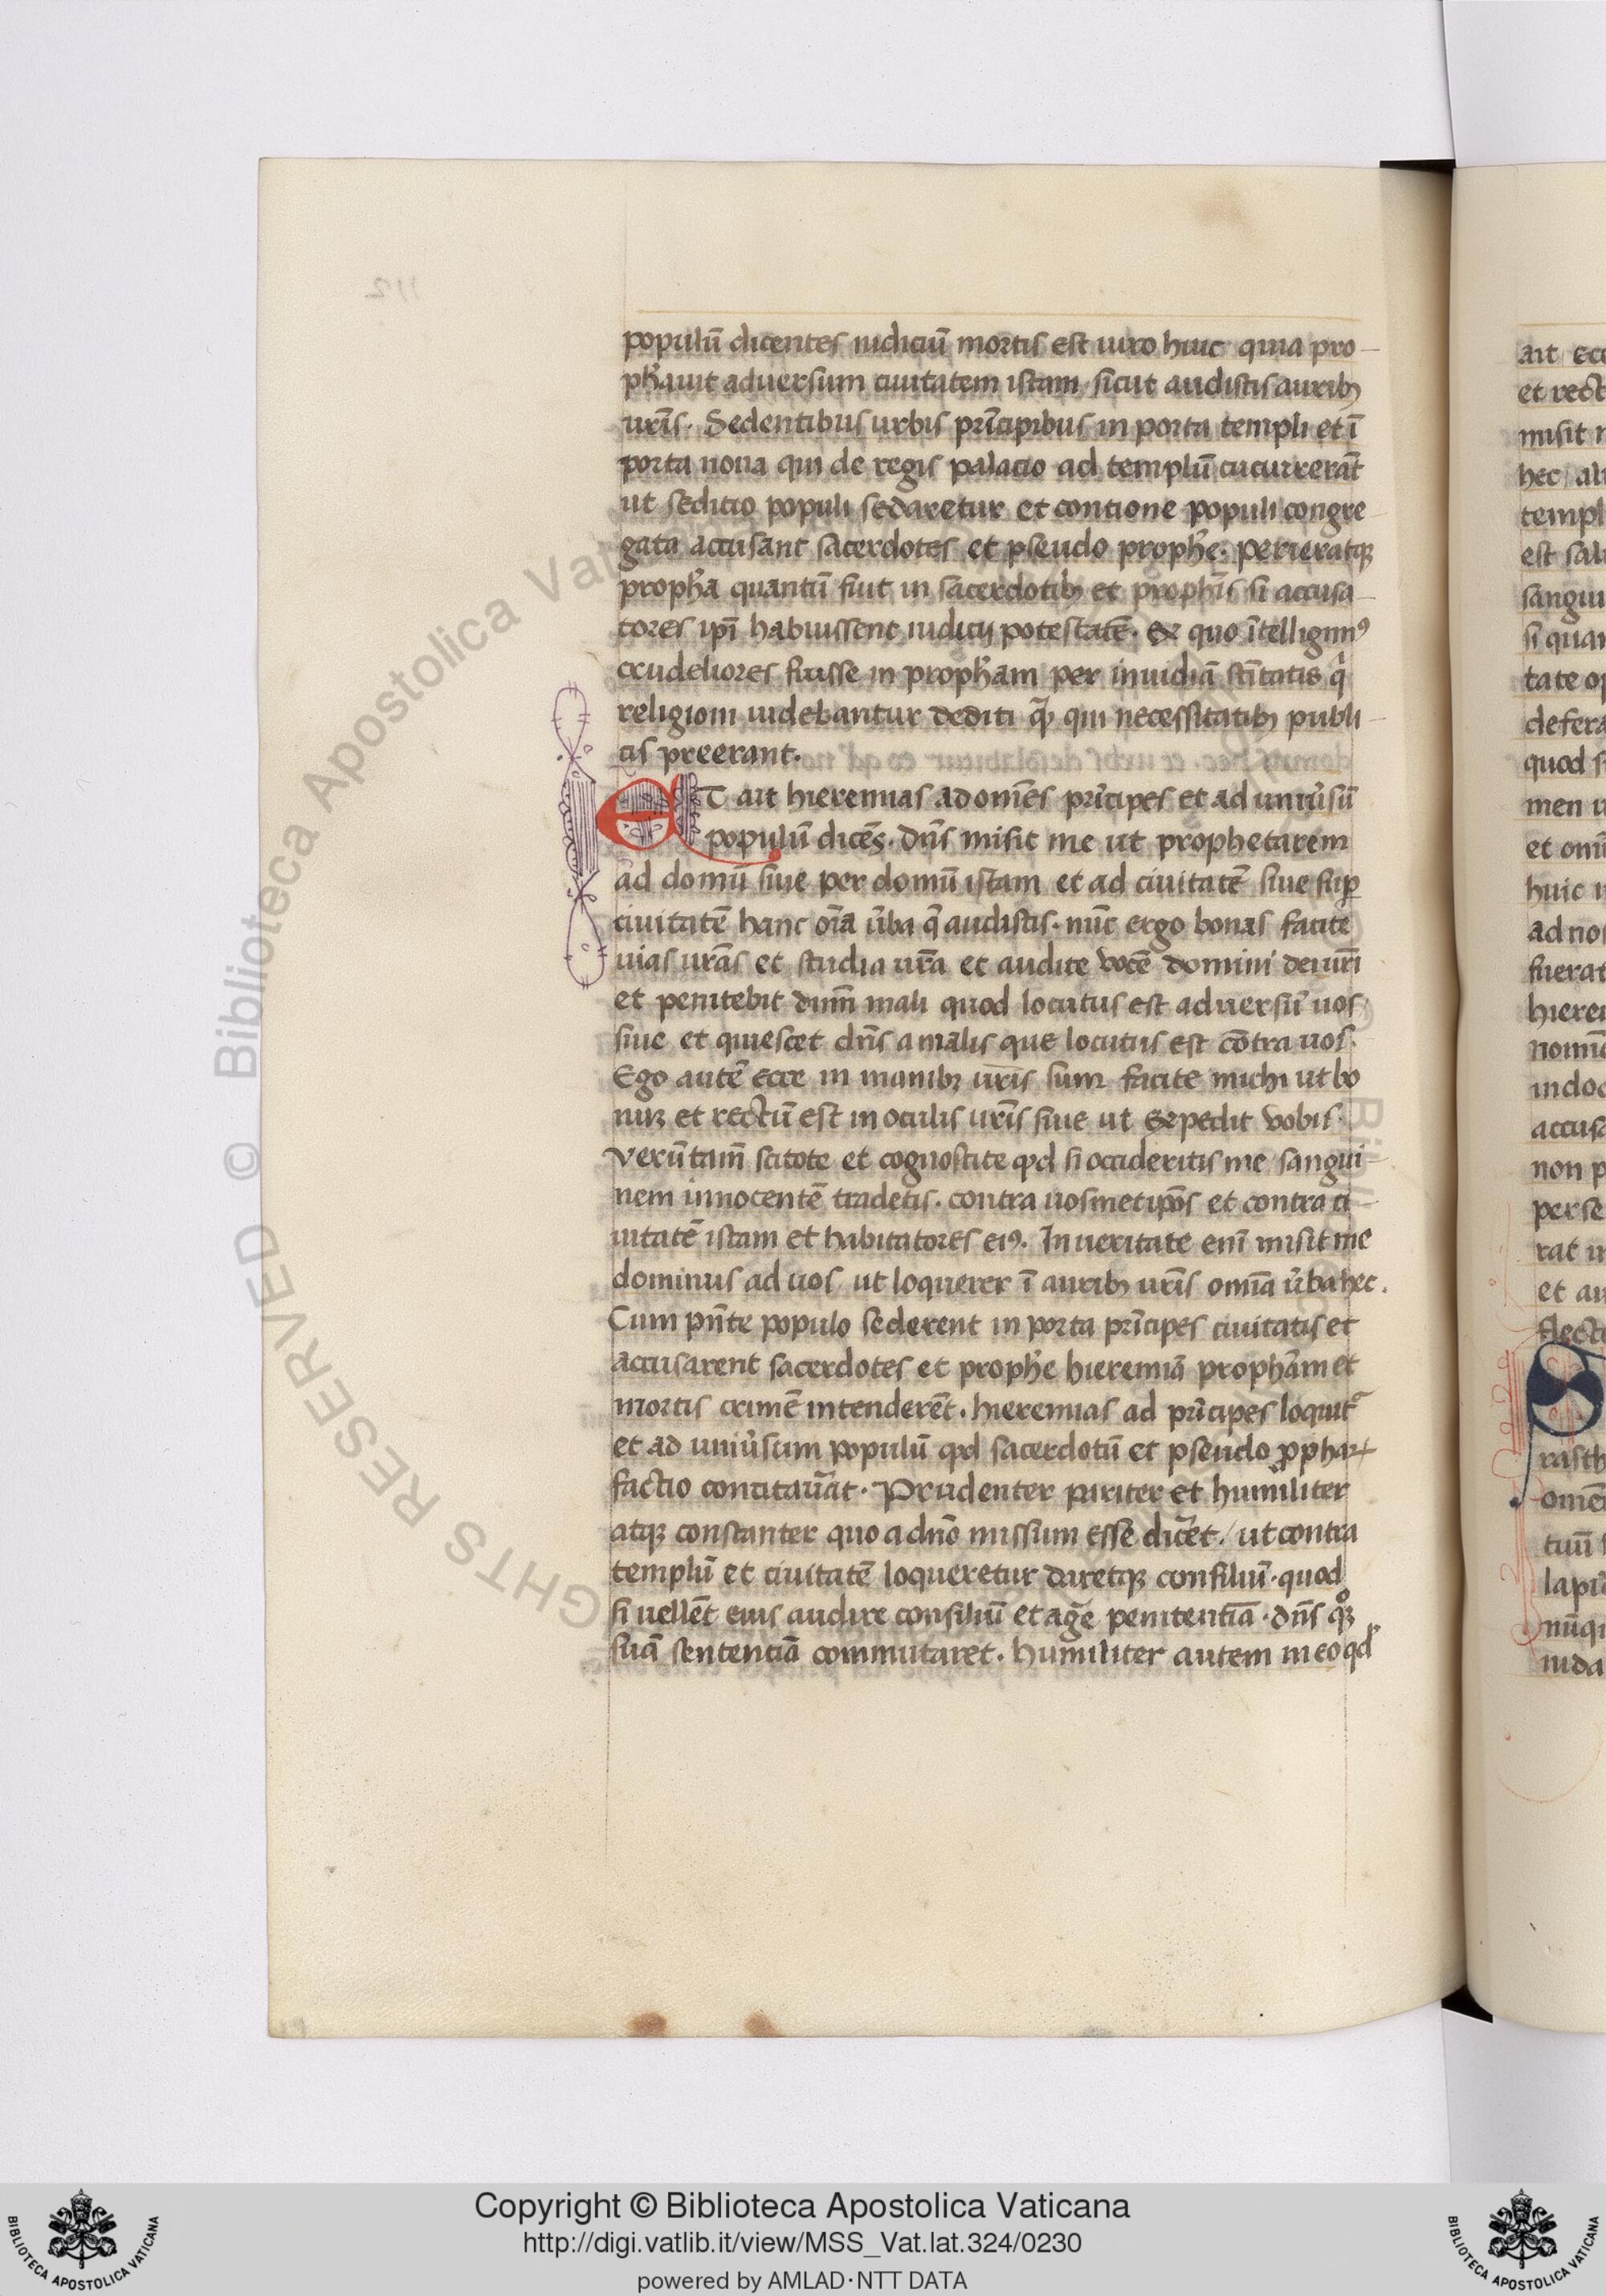 populū dicentes iudiciū mortis est uiro huic quia pro-
ph̄auit aduersum ciuitatem istam sicut audistis aurib3
ur̄is. Sedentibus urbis pri̅cipibus in porta templi et ī
porta noua qui de regis palacio ad templū cucurrerāt
ut seditio populi sedaretur et contione populi congre
gata accusant sacerdotes et pseudo proph̄e. perieratq3
proph̄a quantū fuit in sacerdotib3 et proph̄is si accusa-
tores ip̄i habuissent iudicij potestatē. Ex quo ītelligim9
crudeliores fuisse in proph̄am per inuidiā sc̄itatis q̄
religioni uidebantur dediti q̄ qui necessitatib3 publi-
cis preerant.
ET ait hieremias ad om̄es pri̅cipes et ad uniūsū
populū dicēs. dn̄s misit me ut prophetarem
ad domū siue per domū istam et ad ciuitatē siue sup̄
ciuitatē hanc om̄a ūba q̄ audistis. nūc ergo bonas facite
uias ur̄as et studia ur̄a et audite vocē domini dei ur̄i
et penitebit dn̄m mali quod locutus est aduersū uos/
siue et quiescet dn̄s a malis que locutus est cōtra uos.
Ego autē ecce in manib3 ur̄is sum facite michi ut bo
num et rectū est in oculis ur̄is siue ut expedit vobis.
Verūtam̄ scitote et cognoscite qd si occideritis me sangui-
nem innocentē tradetis. contra uosmetip̄os et contra ci-
uitatē istam et habitatores ei9. In ueritate eni̅ misit me
dominus ad uos/ ut loquerer ī aurib3 ur̄is omi̅a ūba hec.
Cum pn̄te populo sederent in porta pri̅cipes ciuitatis et
accusarent sacerdotes et proph̄e hieremiā proph̄am et
mortis crimē intenderēt. hieremias ad pri̅cipes loquit᷑
et ad uniūsum populū qd sacerdotū et pseudo p̄phar̄
factio concitau̅at. Prudenter pariter et humiliter
atq3 constanter quo a dn̄o missum esse dic̄et./ ut contra
templū et ciuitatē loqueretur daretq3 consiliū. quod
si uellēt eius audire consiliū et aḡe penitentiā. dn̄s qͦ3
suā sententiā commutaret. humiliter autem in eo qd
Copyright © Biblioteca Apostolica Vaticana
http://digi.vatlib.it/view/MSS_Vat.lat.324/0230
powered by AMLAD·NTT DATA